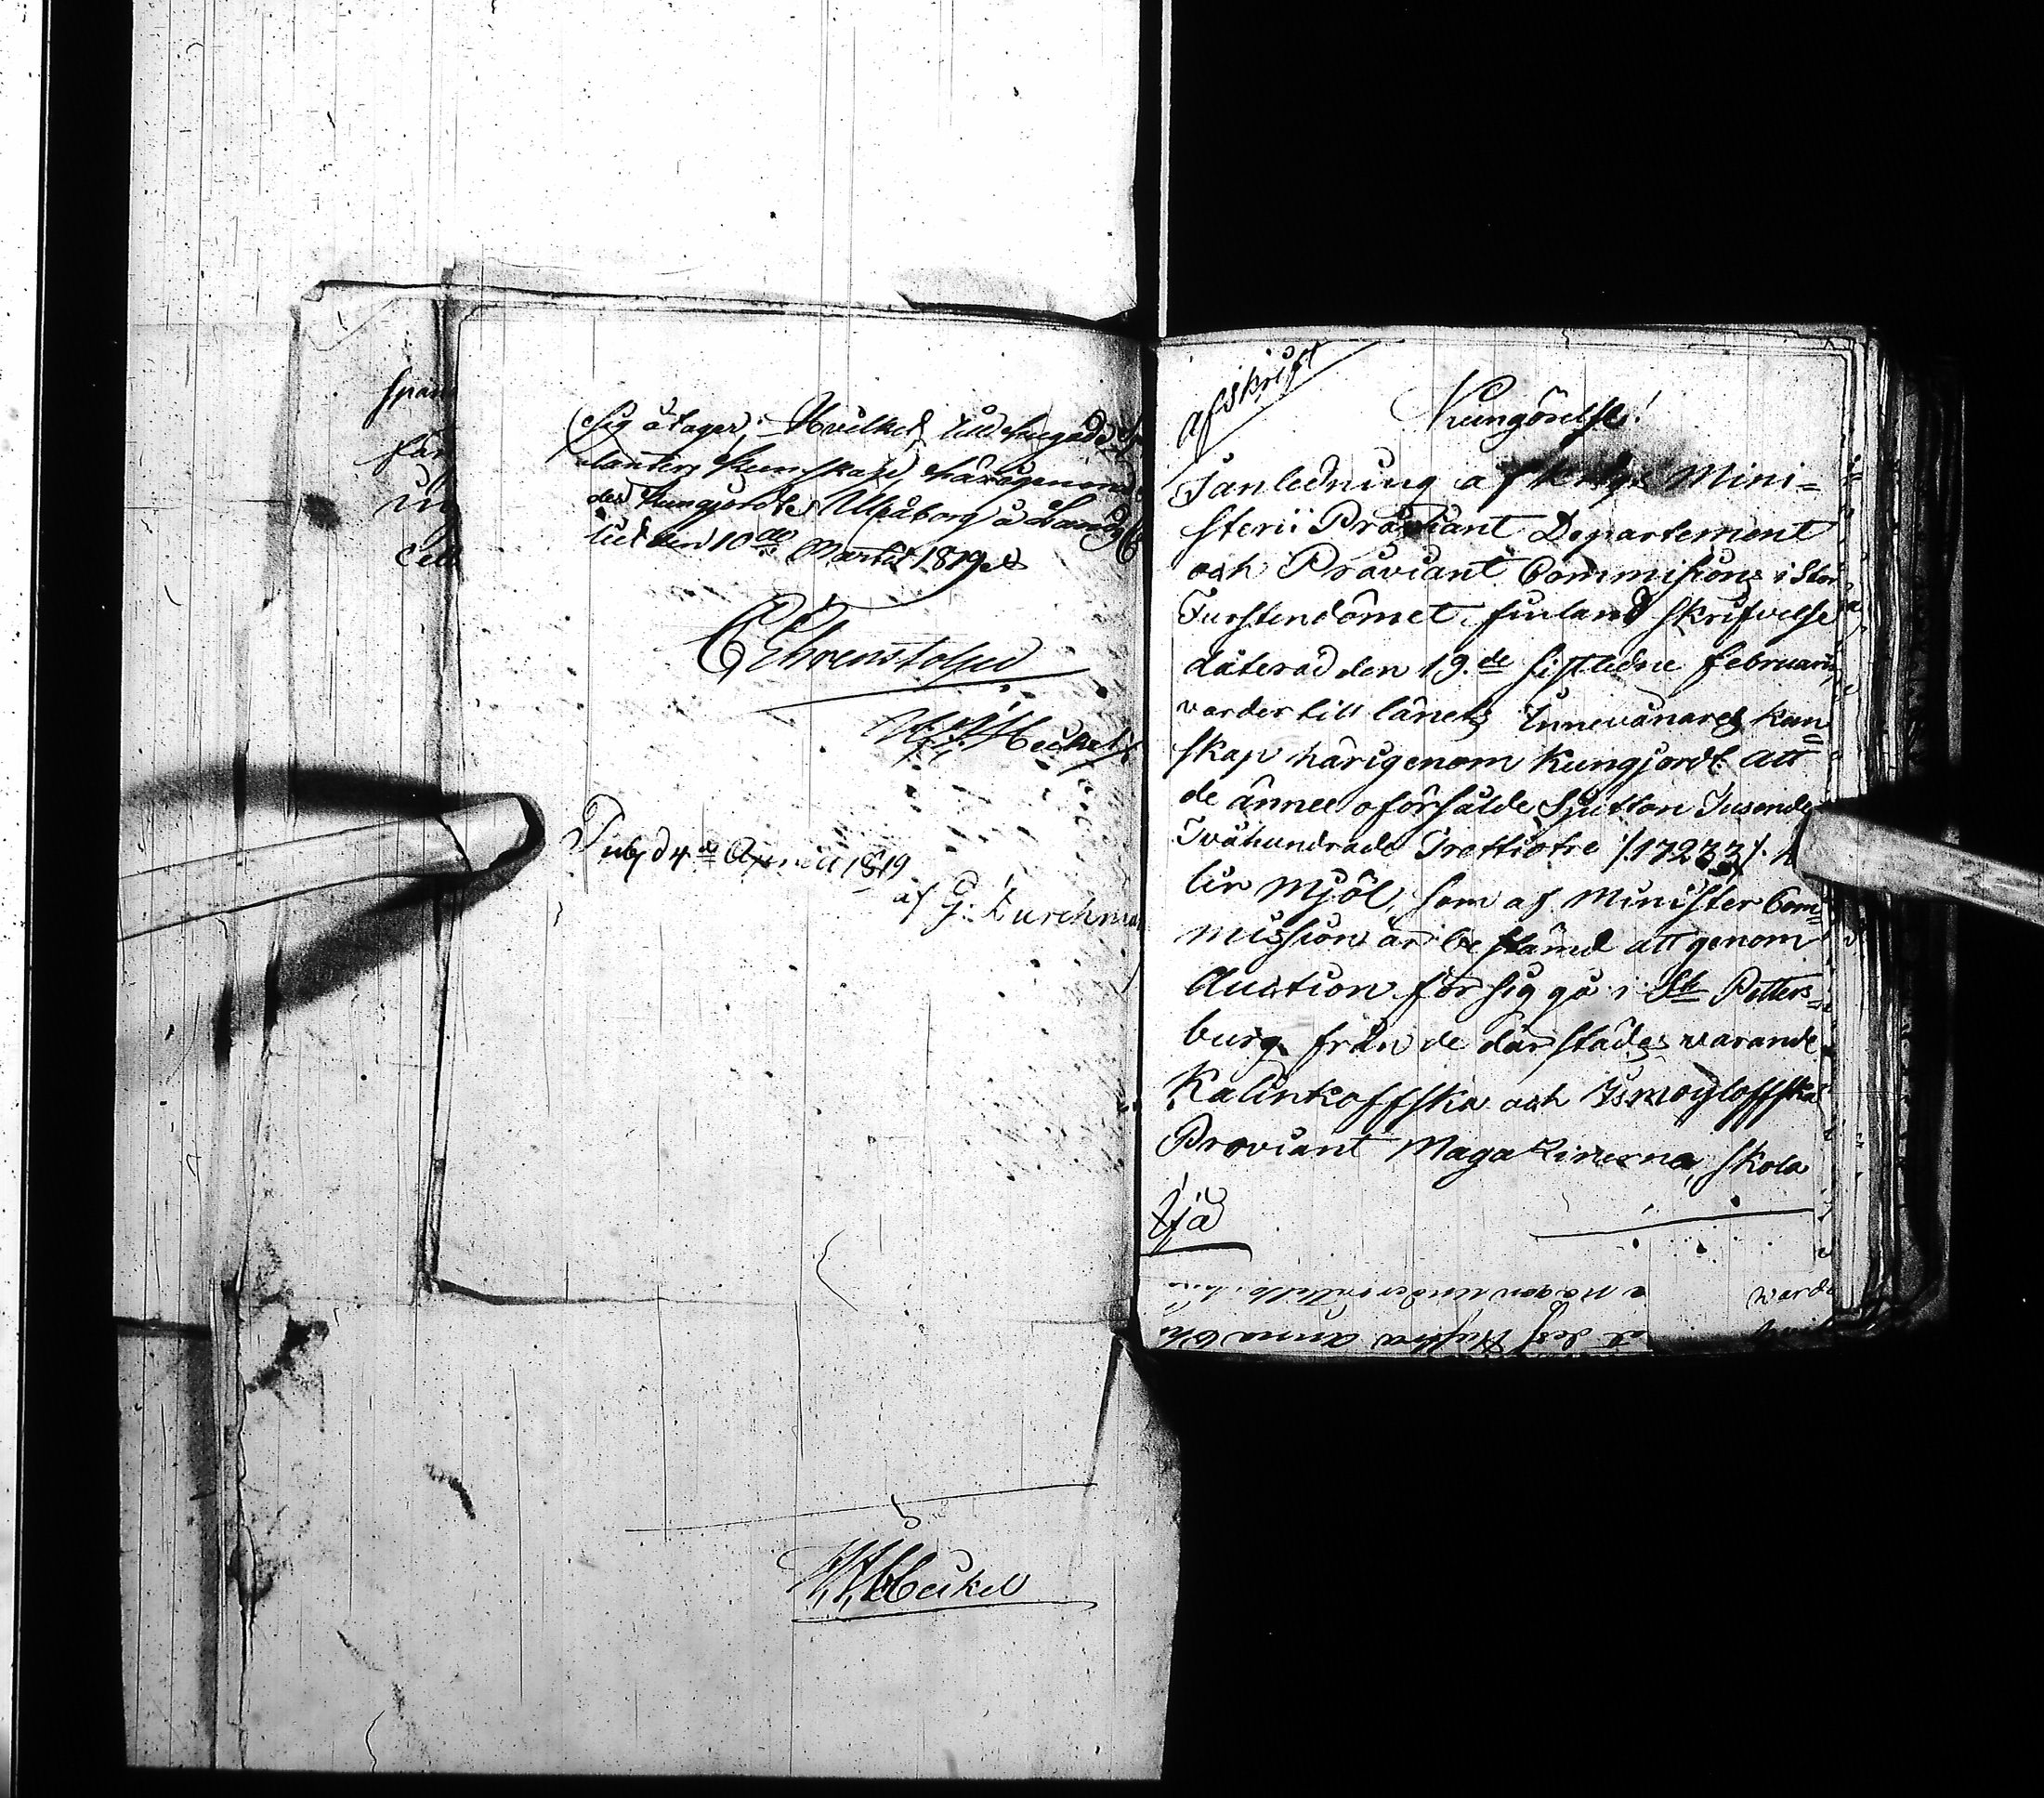 sig åtager; Hvilket till hugade Spe
lanters kunskap härigenom
des kungjordt. Uhleåborg å Lands C
liet den 10de Martii 1819.
C Ehrenstolpe
H. H. Heikel
Publ d 4de Aprill 1819
af G: Zurchman
H. H. Heikel
Afskrift
Kungörelse!
I anledning af Krigs Mini=
sterii Proviant Departement
och Proviant Commisions i Stor
Furstendömet finland skrifvelse
daterad den 19.de sistledne februarii,
varder till länets Innevånares kun=
skap härigenom kungjordt att
de ännu oförsålde Sjutton Tusende
Tvåhundrade Trettiotre /.17233/.
lir Mjöl, som af Minister Com=
mission är bestämd att genom
Auction för sig gå i St Petters=
burg från de därstädes varande
Kalinkoffska och Ismayloffska
Proviant Magazinerna, skola
Spar
för
Cell
varde